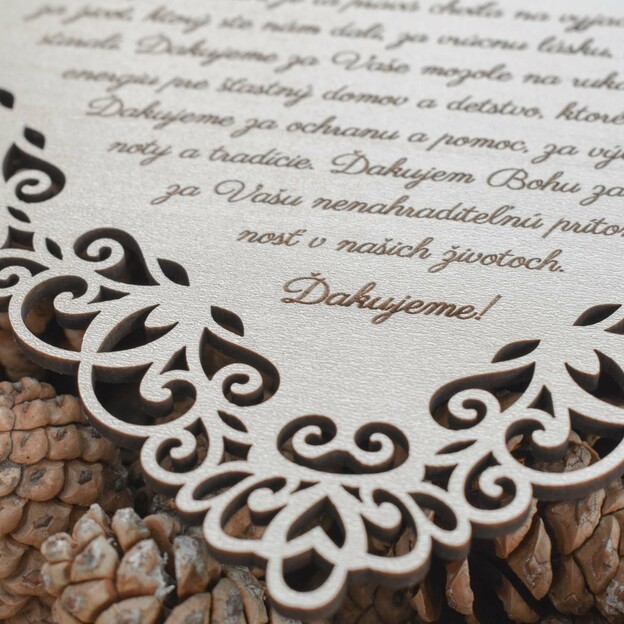 za pravú chvíľu na vyja
za život, ktorý ste nám dali, za vrúcnu lásku,
starali. Ďakujeme za Vaše mozole na ruka
energiu pre šťastný domov a detstvo, ktoré
Ďakujeme za ochranu a pomoc, za vý
noty a tradície. Ďakujem Bohu za
za Vašu nenahraditeľnú príto
nosť v našich životoch.
Ďakujeme!